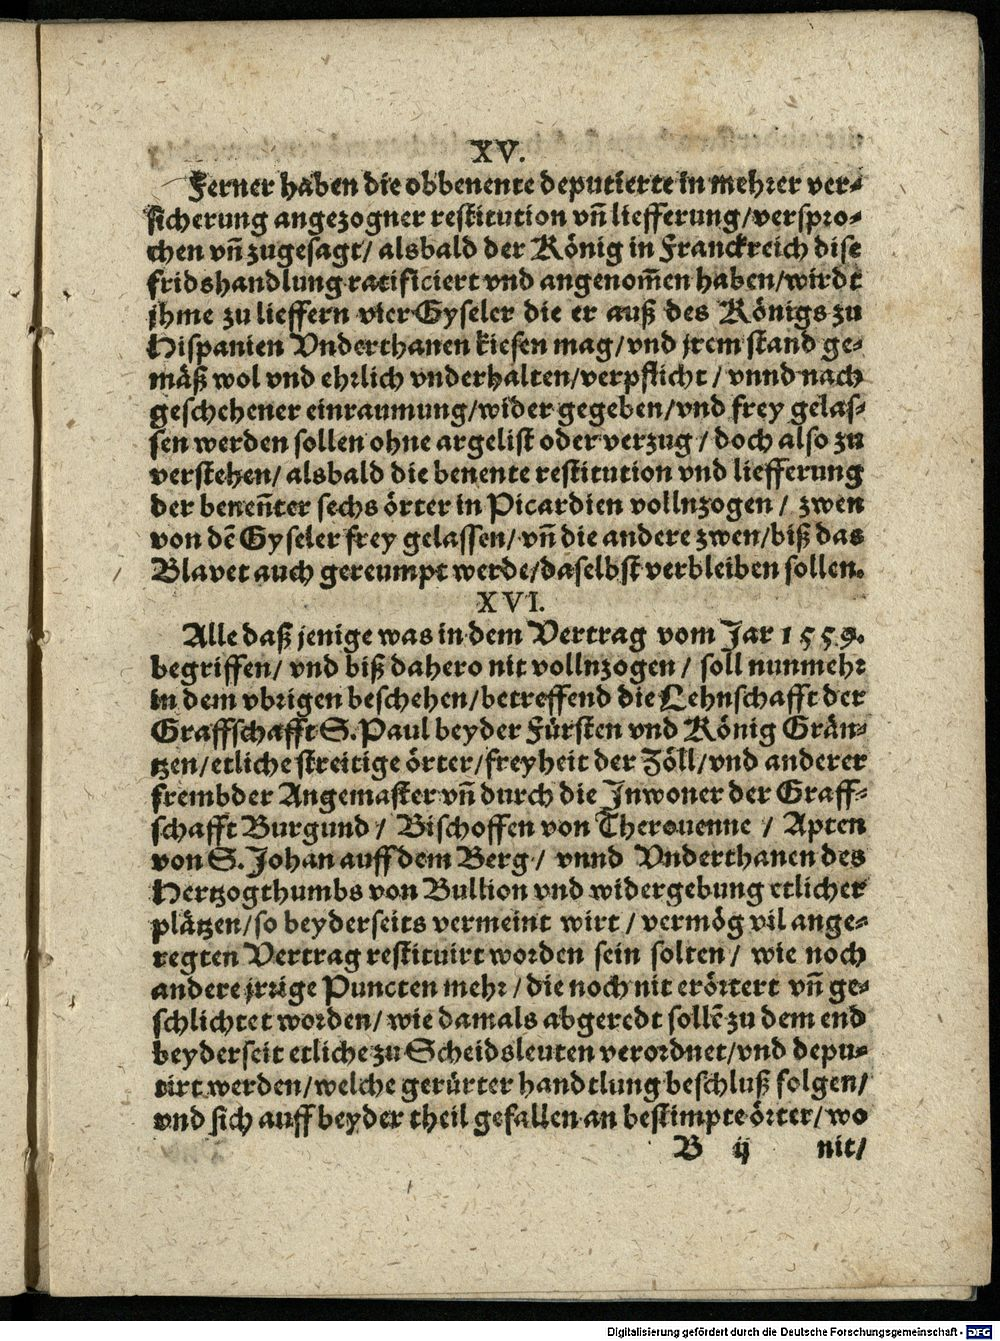 XV.
Ferner haben die obbenente deputierte in mehrer ver-
sicherung angezogner restitution vñ liefferung/verspro-
chen vñ zugesagt/ alsbald der König in Franckreich dise
fridshandlung ratificiert vnd angenom̃en haben/wirdt
jhme zu lieffern vier Gyseler die er auß des Königs zu
Hispanien Vnderthanen kiesen mag/vnd jrem stand ge-
mäß wol vnd ehrlich vnderhalten/verpflicht / vnnd nach
geschehener einraumung/wider gegeben/vnd frey gelas-
sen werden sollen ohne argelist oder verzug / doch also zu
verstehen/ alsbald die benente restitution vnd liefferung
der beneñter sechs örter in Picardien vollnzogen / zwen
von dẽ Gyseler frey gelassen/vñ die andere zwen/biß das
Blavet auch gereumpt werde/daselbst verbleiben sollen.
XVI.
Alle daß jenige was in dem Vertrag vom Jar 1559.
begriffen/ vnd biß dahero nit vollnzogen / soll nunmehr
in dem vbrigen beschehen/betreffend die Lehnschafft der
Graffschafft S. Paul beyder Fürsten vnd König Grän-
tzen/etliche streitige örter/freyheit der Zöll/vnd anderer
frembder Angemaster vñ durch die Inwoner der Graff-
schafft Burgund / Bischoffen von Therouenne / Apten
von S. Johan auff dem Berg / vnnd Vnderthanen des
Hertzogthumbs von Bullion vnd widergebung etlicher
plätzen/so beyderseits vermeint wirt / vermög vil ange-
regten Vertrag restituirt worden sein solten / wie noch
andere jrrige Puncten mehr / die noch nit erörtert vñ ge-
schlichtet worden/ wie damals abgeredt sollẽ zu dem end
beyderseit etliche zu Scheidsleuten verordnet/vnd depu-
tirt werden/welche gerürter handtlung beschluß folgen/
vnd sich auff beyder theil gefallen an bestimpte örter/wo
B ij nit/
Digitalisierung gefördert durch die Deutsche Forschungsgemeinschaft - DFG